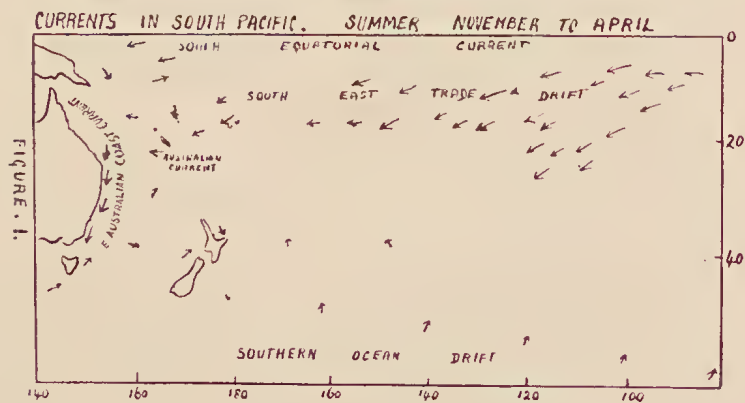 CURRENTS IN SOUTH PACIFIC. SUMMER NOVEMBER TO APRIL
SOUTH EQUATORIAL CURRENT
SOUTH EAST TRADE DRIFT
E AUSTRALIAN COAST CURRENT
AUSTRALIAN
CURRENT
SOUTHERN OCEAN DRIFT
0
20
40
140 160 180 160 140 120 100
FIGURE. 1.